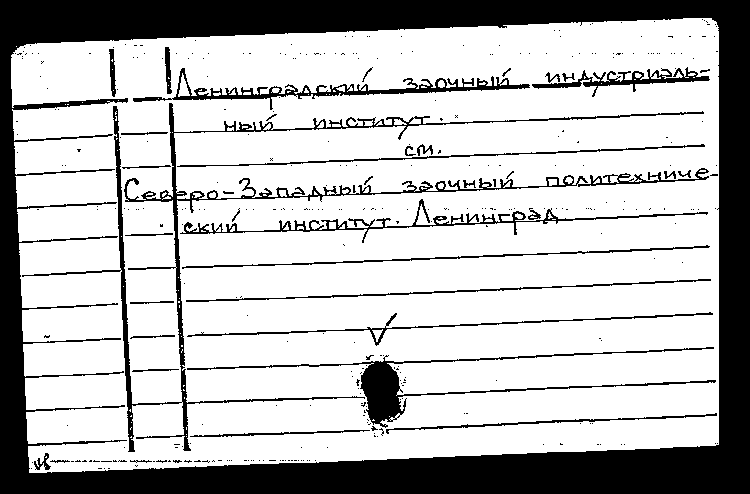 Ленинградский заочный индустриаль-
ный институт.
см.
Северо-Западный заочный политехниче-
ский институт. Ленинград